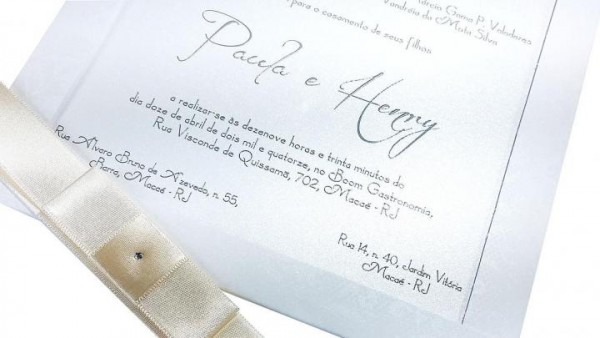 Gama P. Valadares
da Mata Silva
para o casamento de seus filhos
Paula e Henny
a realizar-se às dezenove horas e trinta minutos do
dia doze de abril de dois mil e quatorze, no Boom Gastronomia,
Rua Visconde de Quissamã, 702, Macaé - RJ
Rua Álvaro Bruno de Azevedo, n. 55,
Barra, Macaé - RJ
Rua 14, n. 40, Jardim Vitória
Macaé - RJ